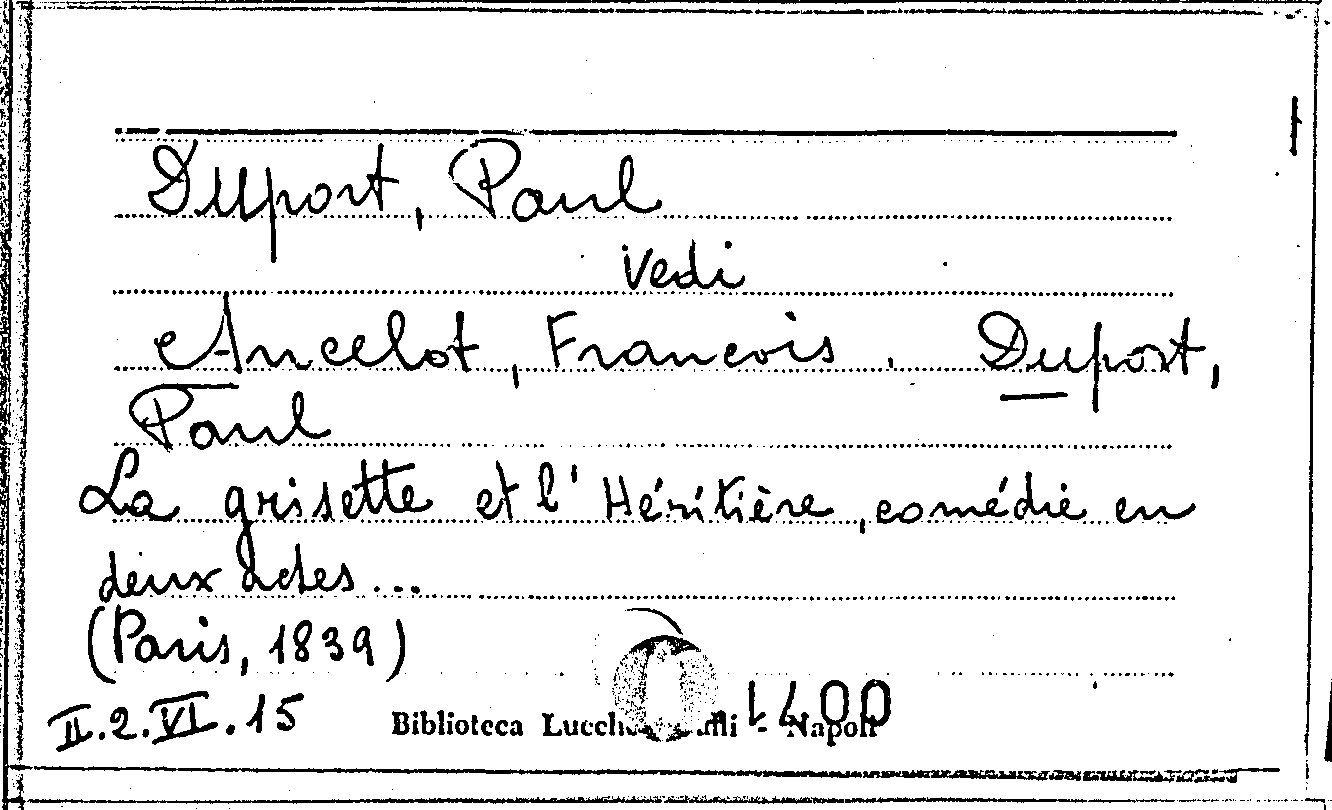 Duport, Paul
Vedi
Ancelot, Francois. Duport,
Paul
La grisette et l'Héritière, comédie en
deux actes...
(Paris, 1839)
II.2.VI.15
Biblioteca - Napoli